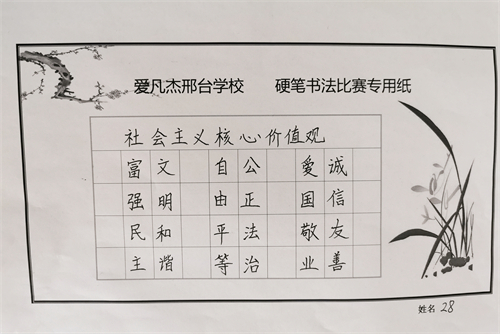 爱凡杰邢台学校 硬笔书法比赛专用纸
社会主义核心价值观
富文 自公 爱诚
强明 由正 国信
民和 平法 敬友
主谐 等治 业善
姓名 28